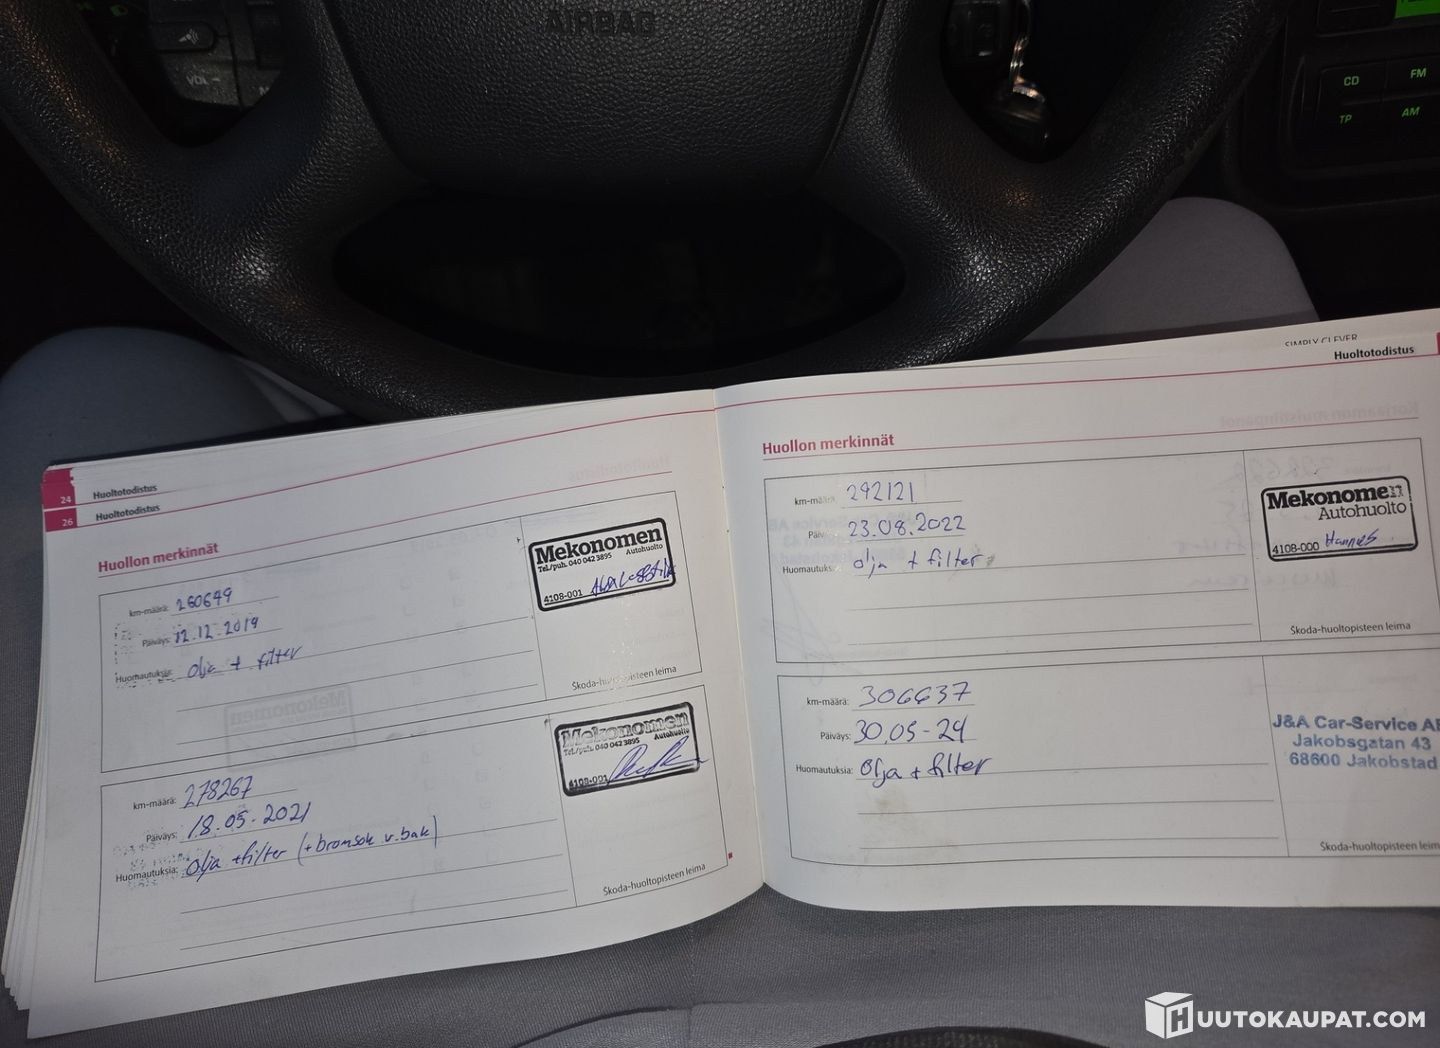 AIRBAG
VOL -
CD
FM
TP
AM
SIMPLY CLEVER
Huoltotodistus
24 Huoltotodistus
26 Huoltotodistus
Huollon merkinnät
km-määrä: 260649
Päiväys: 12.12.2019
Huomautuksia: olja + filter
Mekonomen
Tel./puh. 040 042 3895 Autohuolto
4108-001
Škoda-huoltopisteen leima
km-määrä: 278267
Päiväys: 18.05.2021
Huomautuksia: olja +filter (+bromsok v.bak)
Mekonomen
Tel./puh. 040 042 3895 Autohuolto
4108-001
Škoda-huoltopisteen leima
Huollon merkinnät
km-määrä: 292121
Päiv 23.08.2022
Huomautuksia: olja + filter
Mekonomen
Autohuolto
4108-000 Hannes
Škoda-huoltopisteen leima
km-määrä: 306637
Päiväys: 30.05-24
Huomautuksia: Olja + filter
J&A Car-Service A
Jakobsgatan 43
68600 Jakobstad
Škoda-huoltopisteen leim
HUUTOKAUPAT.COM